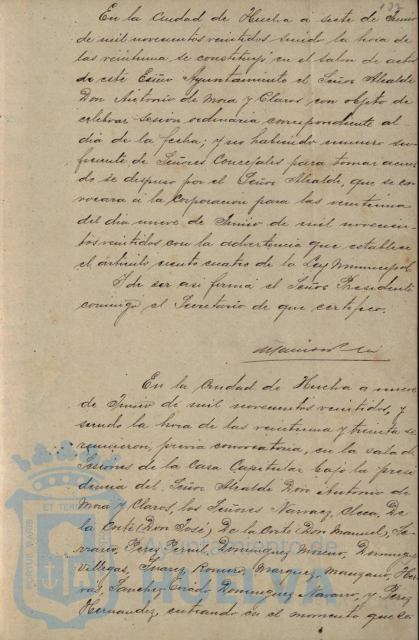 En la Ciudad de Huelva a siete de Junio
de mil novecientos veintidos siendo la hora de
las veintiuna se constituyó en el salon de actos
de este Excmo Ayuntamiento el Señor Alcalde
Don Antonio de Mora y Claros con objeto de
celebrar sesión ordinaria correspondiente al
dia de la fecha; y no habiendo numero su-
ficiente de Señores Concejales para tomar acuer-
do se dispuso por el Señor Alcalde, que se con-
vocara á la Corporacion para las veintiuna
del dia nueve de Junio de mil novecien-
tos veintidos con la advertencia que establece
el articulo ciento cuatro de la Ley Municipal.
Y de ser asi firma el Señor Presidente
conmigo el Secretario de que certifico.
En la Ciudad de Huelva a nueve
de Junio de mil novecientos veintidos, y
siendo la hora de las veintiuna y treinta se
reunieron, previa convocatoria, en la sala de
Sesiones de la Casa Capitular bajo la presi-
dencia del Señor Alcalde Don Antonio de
Mora y Claros, los Señores Narvaez, De
la Corte (Don José), De la Corte (Don Manuel),
Perez Domínguez Moreno, Dominguez
Villegas, Suarez Romero, Marquez, Manzano,
Sanchez Dominguez Navarro, y Perez
Hernandez, entrando en el momento que se
PORTUS MARIS
ET TERRAE
Ayuntamiento de
HUELVA